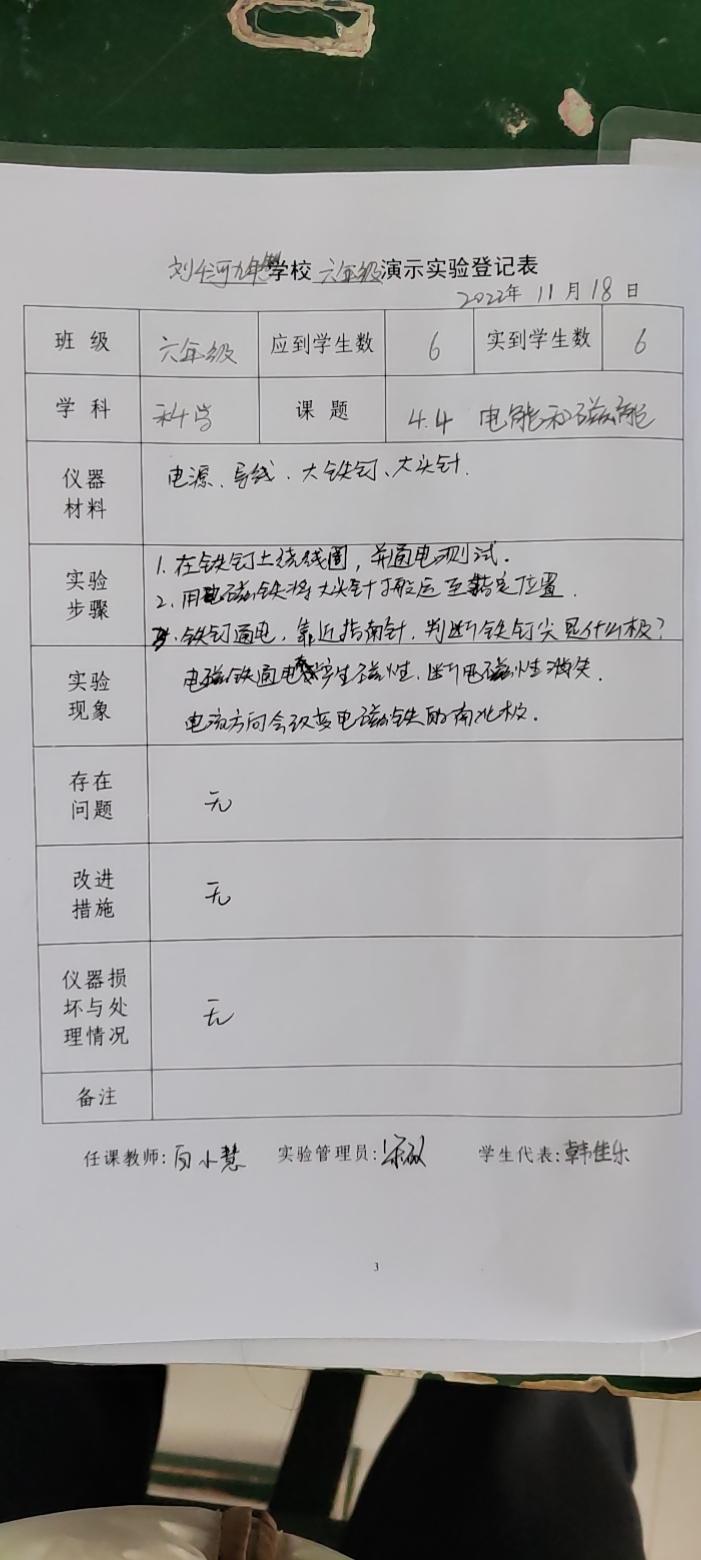 刘仁河九年制学校六年级演示实验登记表
2022年 11月18日
班级 六年级 应到学生数 6 实到学生数 6
学科 科学 课题 4.4 电能和磁能
仪器材料 电源、导线、大铁钉、大头针.
实验步骤 1. 在铁钉上绕线圈,并通电测试.
2. 用电磁铁将大头针搬运至指定位置.
3. 铁钉通电,靠近指南针,判断铁钉尖是什么极?
实验现象 电磁铁通电产生磁性,断电磁性消失.
电流方向会改变电磁铁的南北极.
存在问题 无
改进措施 无
仪器损坏与处理情况 无
备注
任课教师: 小慧 实验管理员: 学生代表:韩佳乐
3